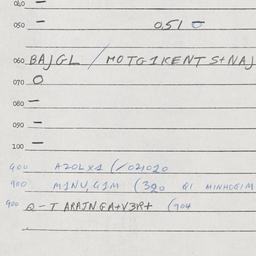 040 –
050 – 051 –
060 BAJGL / MOTG1KENT S+NAJ
070 O
080 –
090 –
100 –
400 A20LX1 (/021020
900 M1NU,G1M (320 GI MINHOGIM
900 Q-T ARAJNGA+V3R+ (904